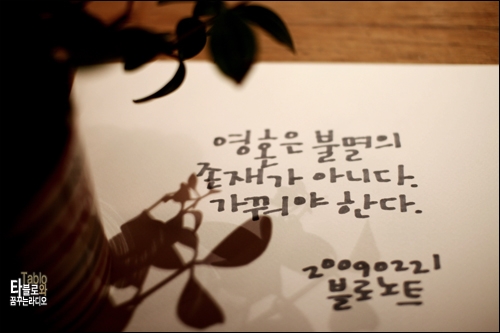 영혼은 불멸의
존재가 아니다.
가꿔야 한다.
20090221
블로노트
Tablo
타블로와
꿈꾸는라디오